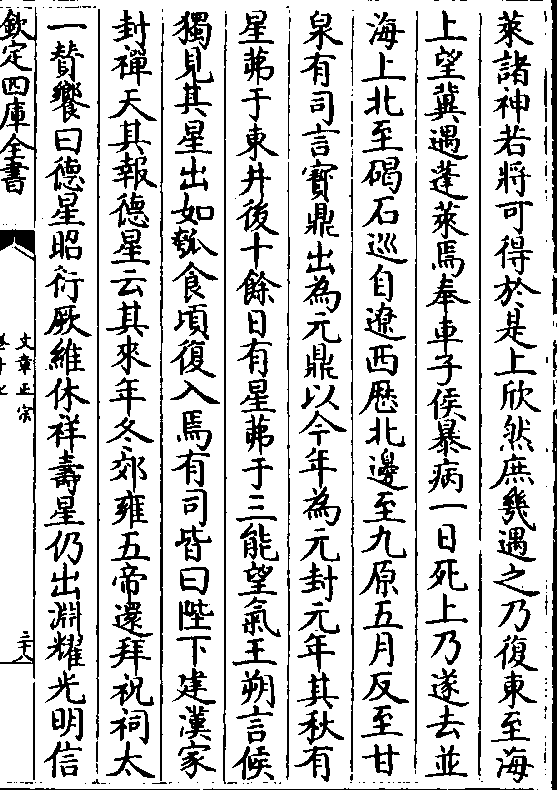 萊諸神若將可得於是上欣然庶幾遇之乃復東至海
上望冀遇蓬萊焉奉車子侯暴病一日死上乃遂去並
海上北至碣石巡自遼西歷北邊至九原五月反至甘
泉有司言寳鼎出為元鼎以今年為元封元年其秋有
星茀于東井後十餘日有星茀于三能望氣王朔言候
獨見其星出如瓠食頃復入焉有司皆曰陛下建漢家
封禪天其報德星云其來年冬郊雍五帝還拜祝祠太
一賛饗曰德星昭衍厥維休祥壽星仍出淵耀光明信
欽定四庫全書
文章正宗
三十八